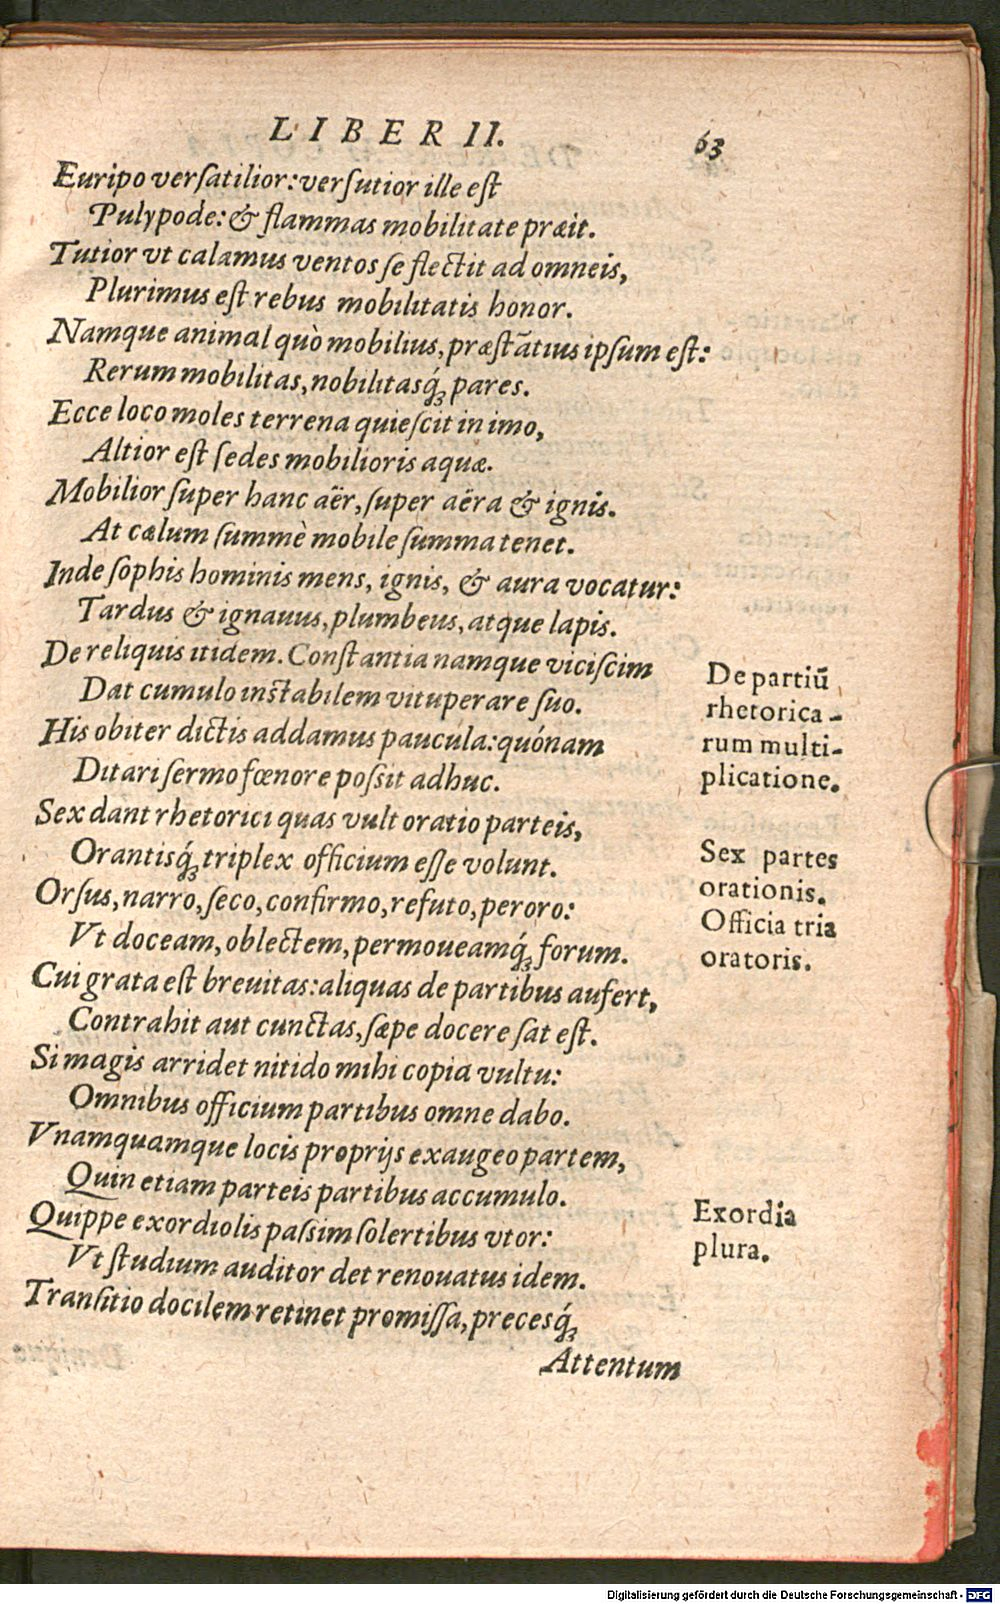 LIBER II. 63
Euripo versatilior: versutior ille est
Pulypode: & flammas mobilitate præit.
Tutior vt calamus ventos se flectit ad omneis,
Plurimus est rebus mobilitatis honor.
Namque animal quò mobilius, præstātius ipsum est:
Rerum mobilitas, nobilitasq́; pares.
Ecce loco moles terrena quiescit in imo,
Altior est sedes mobilioris aquæ.
Mobilior super hanc aër, super aëra & ignis.
At cælum summè mobile summa tenet.
Inde sophis hominis mens, ignis, & aura vocatur:
Tardus & ignauus, plumbeus, atque lapis.
De reliquis itidem. Constantia namque viciscim
Dat cumulo instabilem vituperare suo.
His obiter dictis addamus paucula: quónam
Ditari sermo fœnore possit adhuc.
Sex dant rhetorici quas vult oratio parteis,
Orantisq́; triplex officium esse volunt.
Orsus, narro, seco, confirmo, refuto, peroro:
Vt doceam, oblectem, permoueamq́; forum.
Cui grata est breuitas: aliquas de partibus aufert,
Contrahit aut cunctas, sæpe docere sat est.
Si magis arridet nitido mihi copia vultu:
Omnibus officium partibus omne dabo.
Vnamquamque locis proprijs exaugeo partem,
Quin etiam parteis partibus accumulo.
Quippe exordiolis passim solertibus vtor:
Vt studium auditor det renouatus idem.
Transitio docilem retinet promissa, precesq́;
Attentum
De partiū
rhetorica-
rum multi-
plicatione.
Sex partes
orationis.
Officia tria
oratoris.
Exordia
plura.
Digitalisierung gefördert durch die Deutsche Forschungsgemeinschaft - DFG